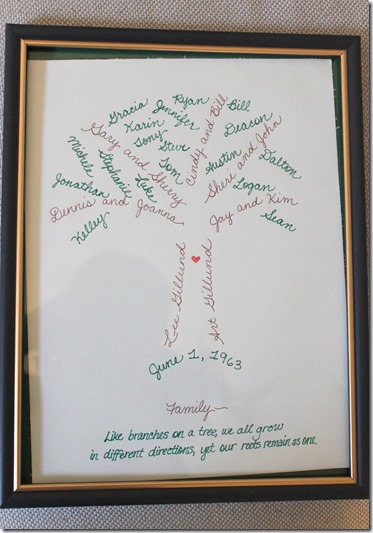 Gracia
Jennifer
Ryan
Bill
Karin
Tony
Steve
Tom
Cindy and Bill
Deacon
Gary and Sherry
Austin
Sheri and John
Dalton
Michele
Stephanie
Luke
Logan
Jonathan
Dennis and Joanna
Jay and Kim
Kelley
Sean
Lee Gillund
Art Gillund
June 1, 1963
Family
Like branches on a tree, we all grow
in different directions, yet our roots remain as one.